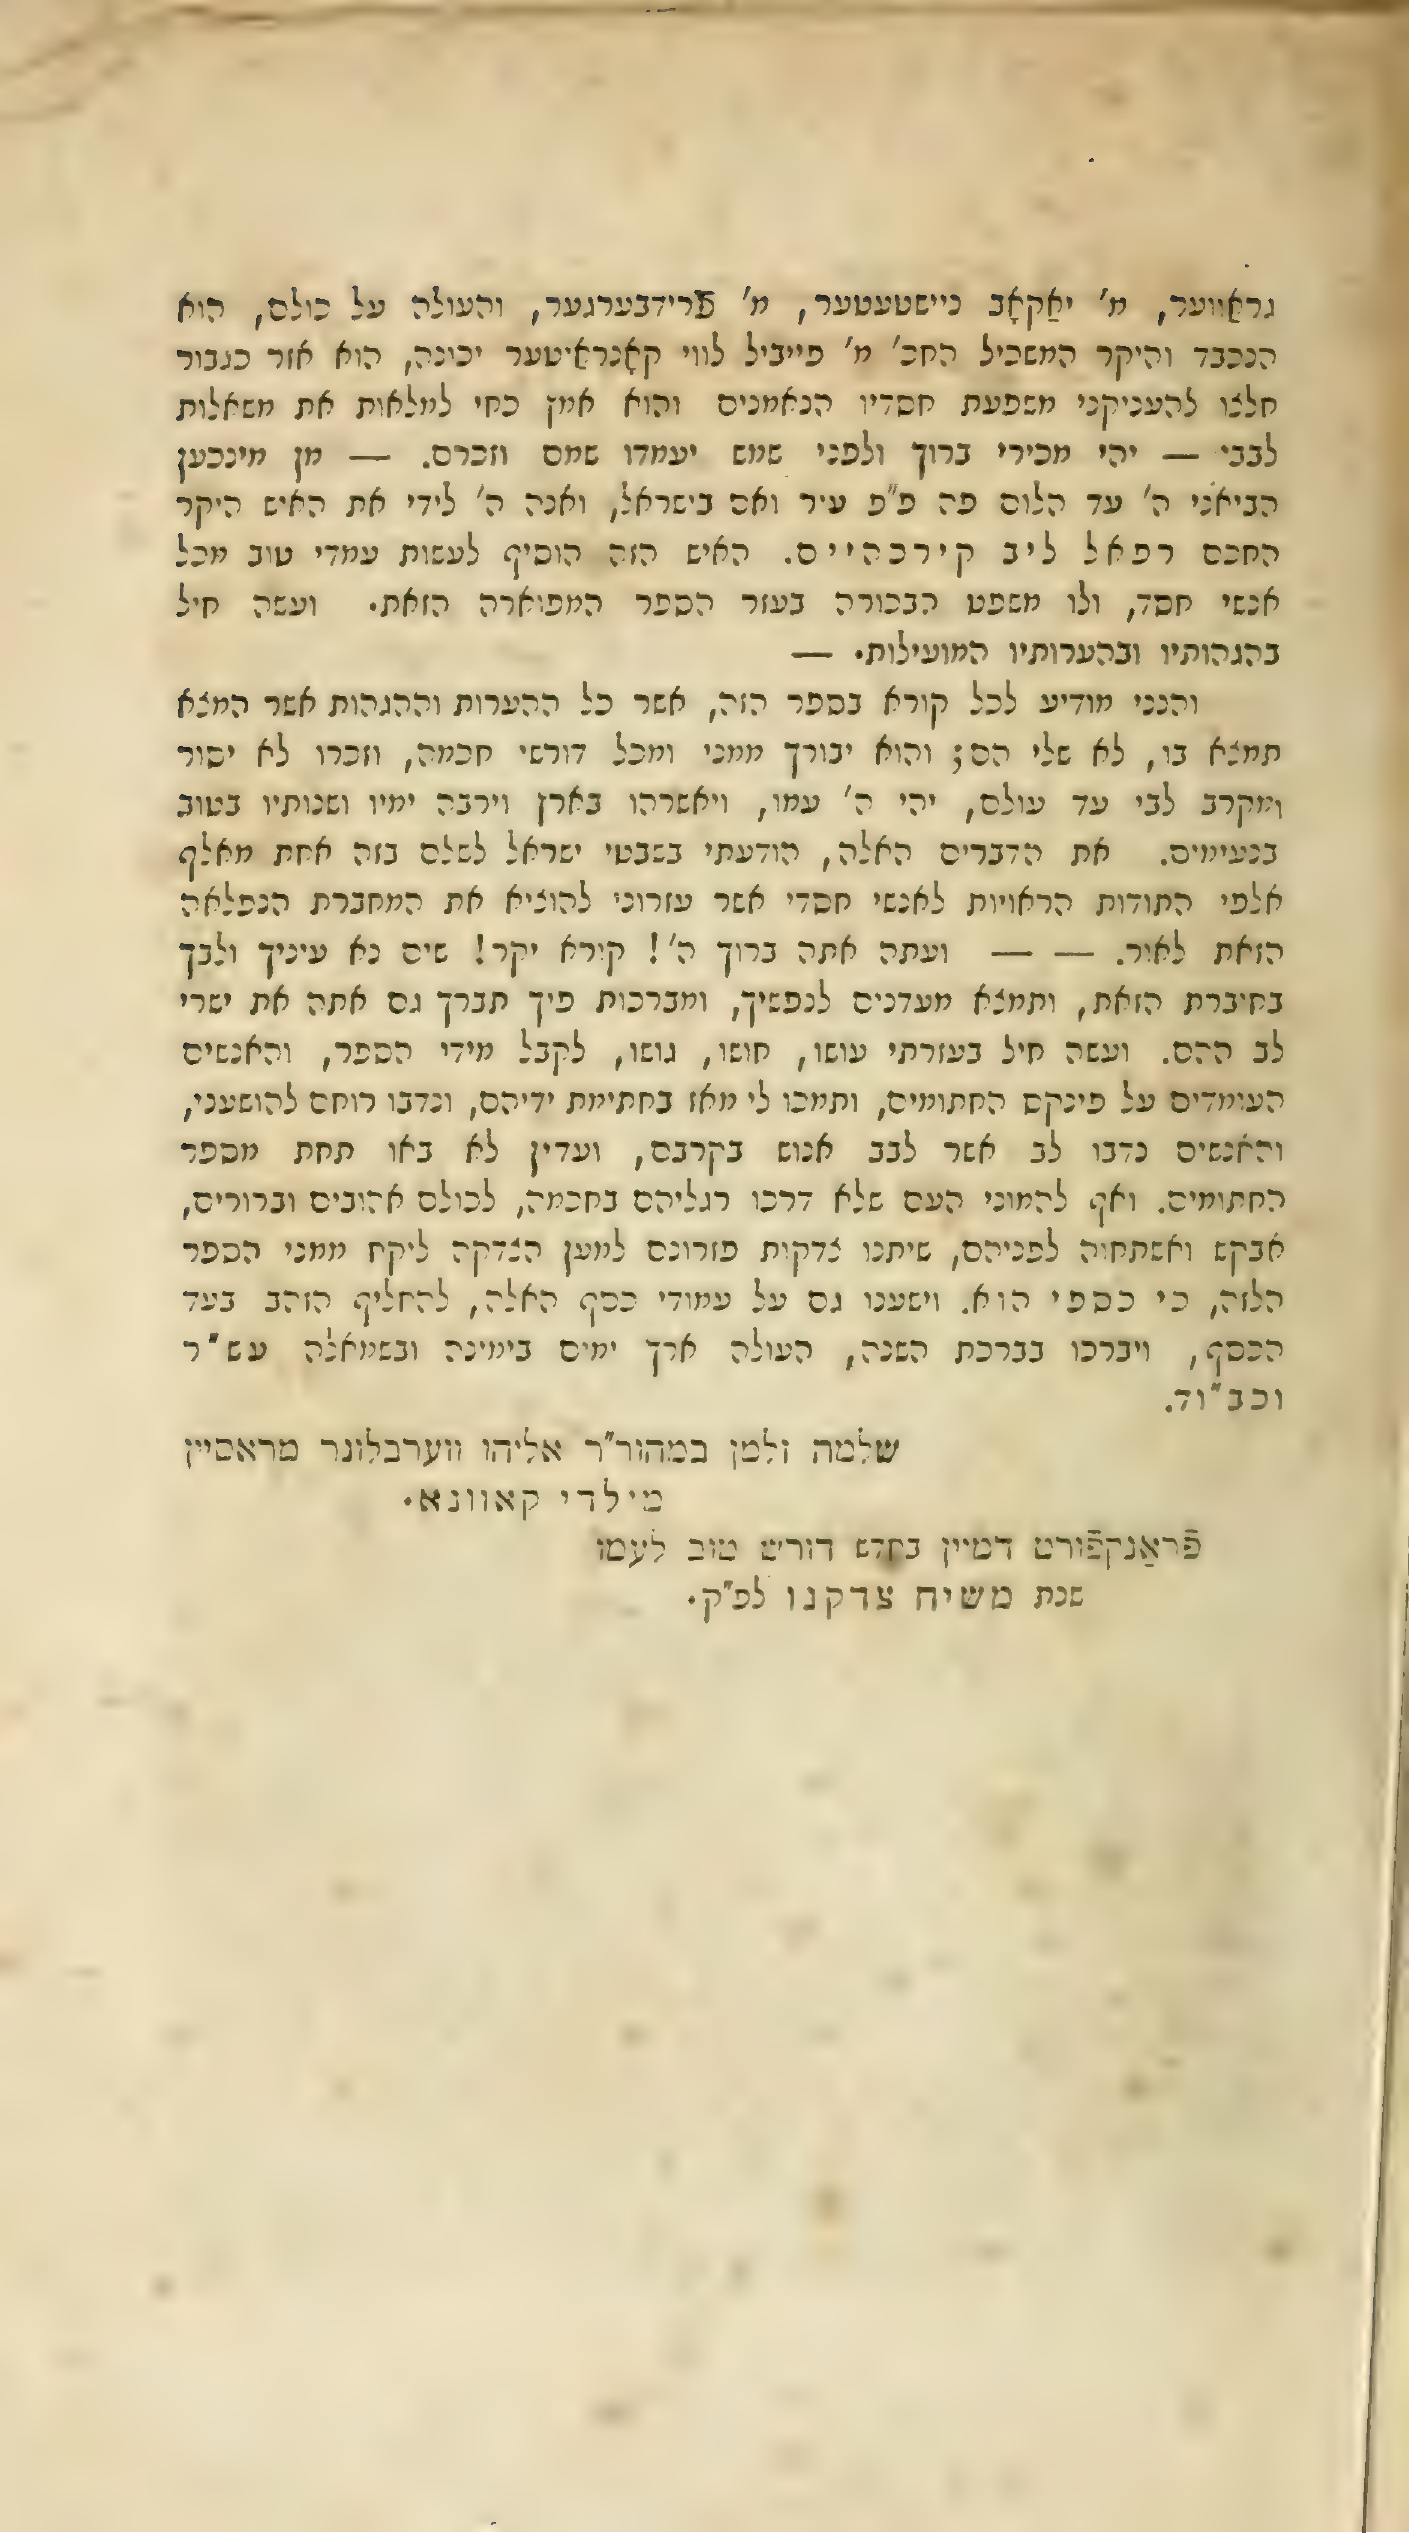 גראַווער, מ' יאַקאָב ניישטעטער, מ' פֿרידבערגער, והעולה על כולם, הוא
הנכבד והיקר המשכיל החכ' מ' פייביל לווי קאָנראַיטער יכונה, הוא אזר כגבור
חלצו להעניקני משפעת חסדיו הנאמנים והוא אמץ כחי למלאות את משאלות
לבבי — יהי מכירי ברוך ולפני שמש יעמדו שמם וזכרם. — מן מינכען
הביאני ה' עד הלום פה פ"פ עיר ואם בישראל, ואנה ה' לידי את האיש היקר
החכם רפאל ליב קירכהיים. האיש הזה הוסיף לעשות עמדי טוב מכל
אנשי חסד, ולו משפט הבכורה בעזר הספר המפוארה הזאת. ועשה חיל
בהגהותיו ובהערותיו המועילות. —
והנני מודיע לכל קורא בספר הזה, אשר כל ההערות וההגהות אשר המצא
תמצא בו, לא שלי הם; והוא יבורך ממני ומכל דורשי חכמה, וזכרו לא יסור
ומקרב לבי עד עולם, יהי ה' עמו, ויאשרהו בארץ וירבה ימיו ושנותיו בטוב
בנעימים. את הדברים האלה, הודעתי בשבטי ישראל לשלם בזה אחת מאלף
אלפי התודות הראויות לאנשי חסדי אשר עזרוני להוציא את המחברת הנפלאה
הזאת לאור. — — ועתה אתה ברוך ה'! קורא יקר! שים נא עיניך ולבך
בחיברת הזאת, ותמצא מעדנים לנפשיך, ומברכות פיך תברך גם אתה את ישרי
לב ההם. ועשה חיל בעזרתי עושו, חושו, גושו, לקבל מידי הספר, והאנשים
העומדים על פינקס החתומים, ותמכו לי מאז בחתימת ידיהם, ונדבו רוחם להושעני,
והאנשים נדבו לב אשר לבב אנוש בקרבם, ועדיין לא באו תחת מספר
החתומים. ואף להמוני העם שלא דרכו רגליהם בחכמה, לכולם אהובים וברורים,
אבקש ואשתחוה לפניהם, שיתנו צדקות פזרונם למען הצדקה ליקח ממני הספר
הלזה, כי כספי הוא. וישענו גם על עמודי כסף האלה, להחליף הזהב בעד
הכסף, ויברכו בברכת השנה, העולה ארך ימים בימינה ובשמאלה עש"ר
וכב"וד.
שלמה זלמן במהור"ר אליהו ווערבלונר מראסיין
מילדי קאוונא.
פֿראַנקפֿורט דמיין בחדש דורש טוב לעמו
שנת משיח צדקנו לפ"ק.